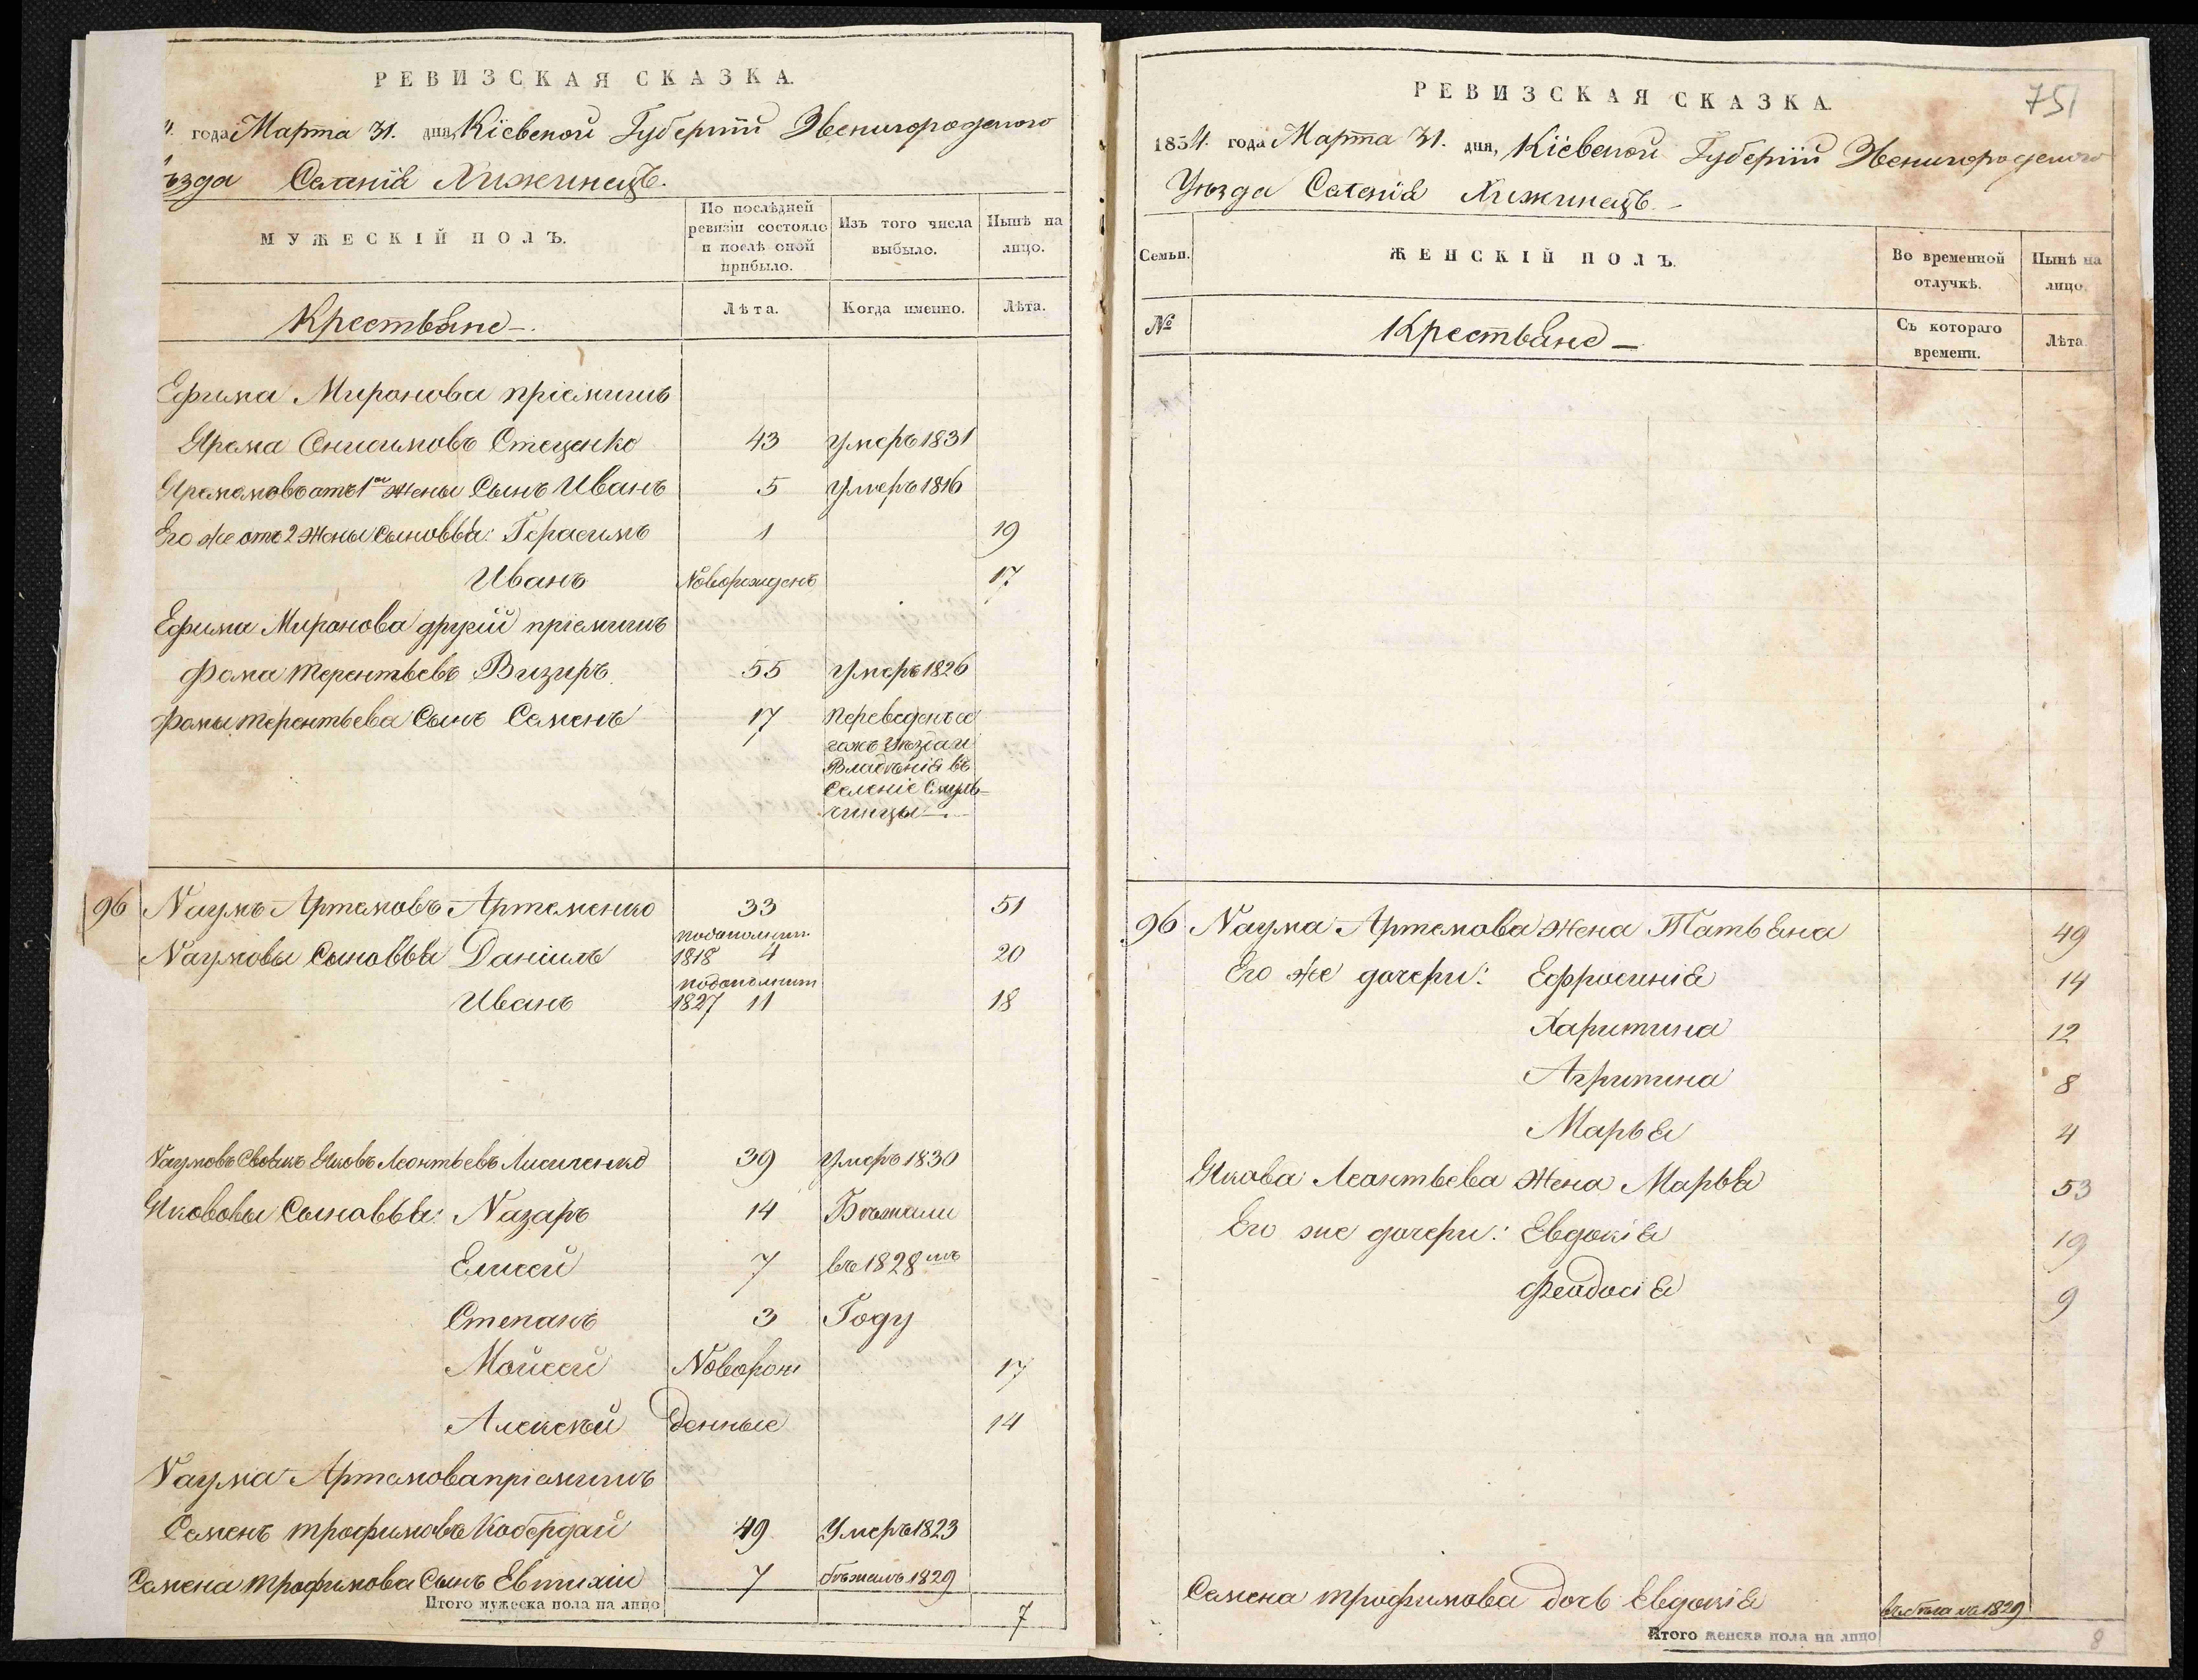 РЕВИЗСКАЯ СКАЗКА.
года Марта 31. дня, Кіевской Губерніи Звенигородского
ѣзда Селенія Хижинецъ.
МУЖЕСКІЙ ПОЛЪ.
По послѣдней ревизіи состояло и послѣ оной прибыло.
Изъ того числа выбыло.
Нынѣ на лицо.
Крестьяне
Лѣта.
Когда именно.
Лѣта.
Ефима Миронова пріемишъ
Ярема Онисимовъ Стеценко 43 Умеръ 1831
Яремовъ отъ 1ой жены Сынъ Иванъ 5 Умеръ 1816
Его же отъ 2 жены сыновья: Герасимъ 1 19
Иванъ Новорожденъ 17
Ефима Миронова другій пріемишъ
Фома Терентьевъ Визиръ 55 Умеръ 1826
Фомы Терентьева Сынъ Семенъ 17 Переведенъ
Уѣзда и
Владѣнія въ
Селеніе Смуль-
чинцы
96 Наумъ Артемовъ Артеменко 33 51
Наумовы Сыновья Даніилъ 1818 4 20
Иванъ 1827 11 18
Наумовъ Своякъ Яковъ Леонтьевъ Лисиченко 39 Умеръ 1830
Яковovы Сыновья: Назаръ 14 Бѣжали
Елисей 7 въ 1828мъ
Степанъ 3 Году
Мойсей Новорож 17
Алексѣй денные 14
Наума Артемова пріемишъ
Семенъ Трофимовъ Кобердай 49 Умеръ 1823
Семена Трофимова Сынъ Евтихій 7 бѣжалъ 1829
Итого мужеска пола на лицо 7
751
РЕВИЗСКАЯ СКАЗКА.
1834. года Марта 31. дня, Кіевской Губерніи Звенигородского
Уѣзда Селенія Хижинецъ.
Семьи.
ЖЕНСКІЙ ПОЛЪ.
Во временной отлучкѣ.
Нынѣ на лицо.
№
Крестьяне
Съ котораго времени.
Лѣта.
96 Наума Артемова жена Татьяна 49
Его же дочери: Ефросинія 14
Харитина 12
Агрипина 8
Марья 4
Якова Леонтьева жена Марья 53
Его же дочери: Евдокія 19
Феодосія 9
Семена Трофимова дочь Евдокія 1829
Итого женска пола на лицо 8